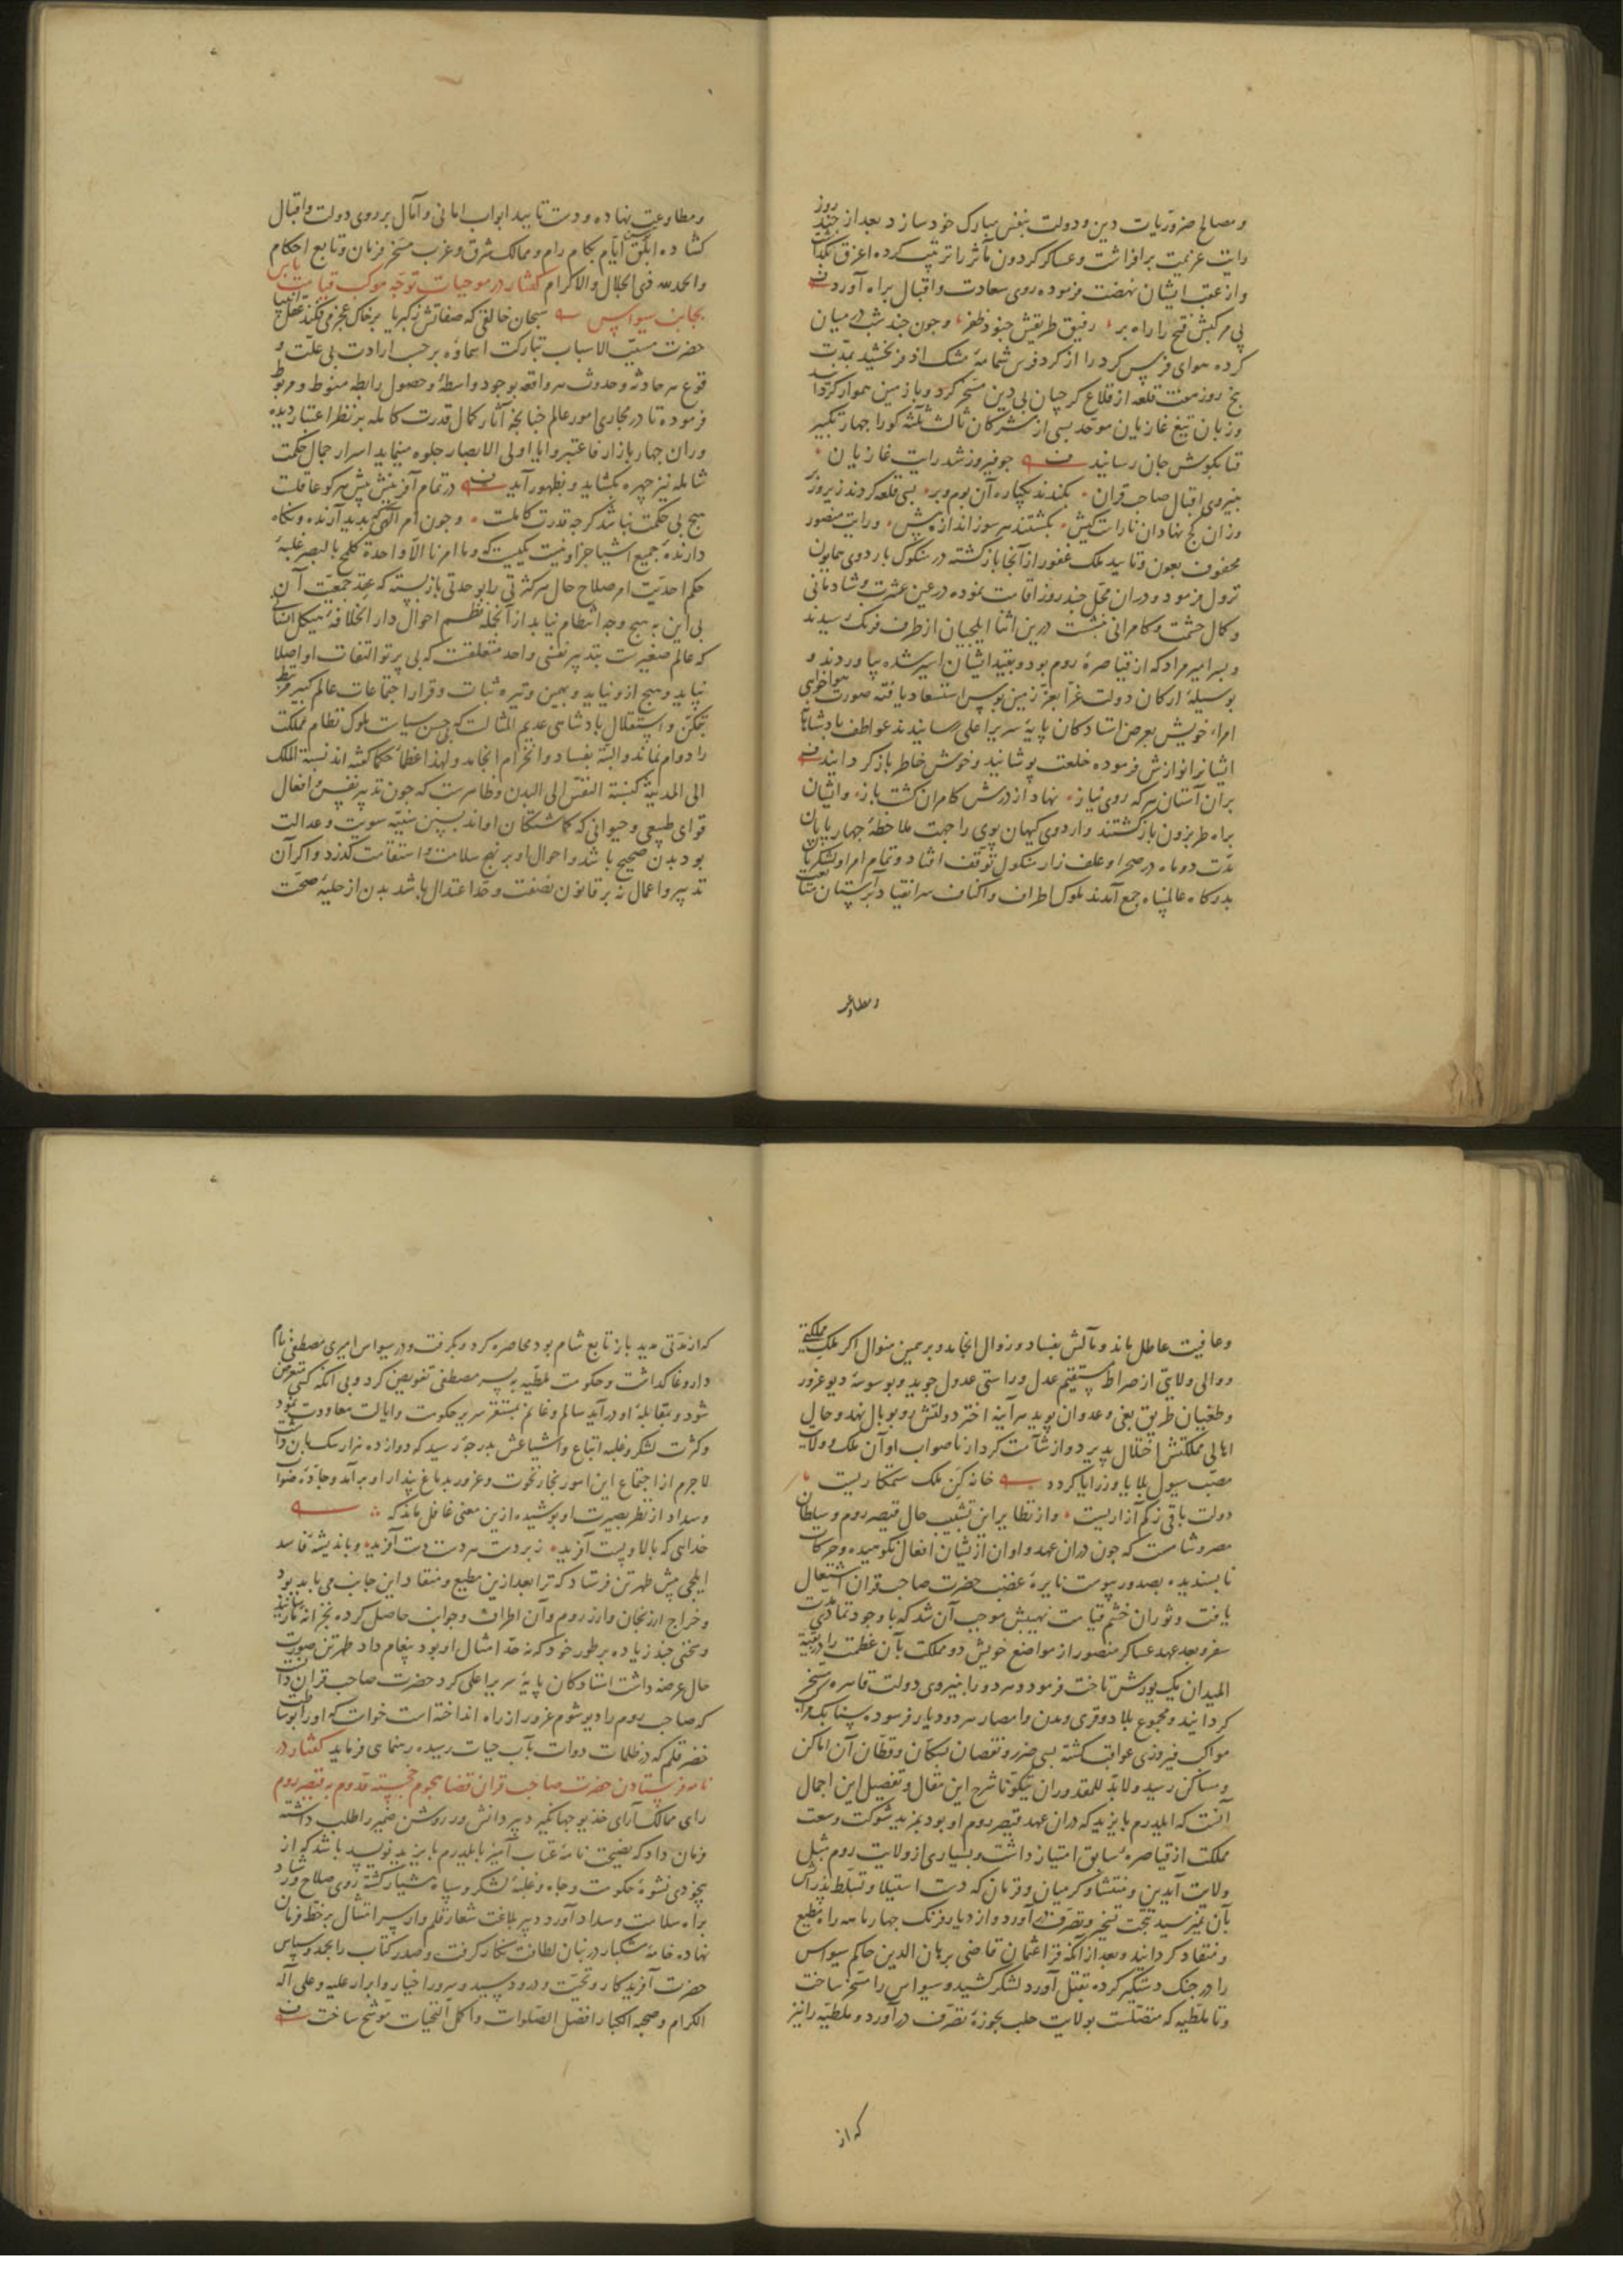 و مصالح ضروریات دین و دولت بنفس مبارک خود سازد بعد از چند روز
رایت عزیمت برافراشت و عساکر کردون مآثر را ترتیب کرده اغرق بگذاشت
و از عقب ایشان نهضت فرموده روی سعادت و اقبال براه آورد
پی مرکبش فتح را راه بر رفیق طریقش جنود ظفر و چون چند شب در میان
کرده هوای فرس کرد را از کرد فرس شمامهٔ مشک اذفر بخشید بمدت
پنج روز هفت قلعه از قلاع کرجیان بی دین مسخر کرد و با زمین هموار کردانید
و زبان تیغ غازیان موحد بسی از مشرکان ثالث ثلثه کو را چهار تکبیر
فنا بکوش جان رسانید چو فیروز شد رایت غازیان
بنیروی اقبال صاحب قران بکندند یکباره آن بوم و بر بسی قلعه کردند زیر و زبر
وزان کج نهادان ناراست کیش بکشتند هر سوز اندازه بیش و رایت منصور
محفوف بعون و تایید ملک غفور از آنجا بازکشته در منکول باردوی همایون
نزول فرمود و دران محل چند روز اقامت نموده در عین عشرت و شادمانی
و کمال حشمت و کامرانی بنشست درین اثنا ایلچیان از طرف فرنک رسیدند
و پسر امیر مراد که از قیاصرهٔ روم بود و بقید ایشان اسیر شده بیاوردند و
بوسیلهٔ ارکان دولت غرا بعز زمین بوس استسعاد یافته صورت هواخواهی
امراء خویش بعرض استادکان پایهٔ سریر اعلی رسانیدند عواطف پادشاهانه
ایشانرا نوازش فرموده خلعت پوشانید و خوش خاطر بازکردانید
بران آستان هر که روی نیاز نهاد از درش کامران کشت باز و ایشان
براه طربزون بازکشتند و اردوی کیهان پوی را جهت ملاحظهٔ چهارپایان
مدت دو ماه در صحرا و علف زار منکول توقف افتاد و تمام امرا و لشکریان
بدرکاه عالم پناه جمع آمدند ملوک اطراف و اکناف سر انقیاد بر آستان متابعت
و مطاوعت
و مطاوعت نهاده و دست تایید ابواب امانی و آمال بر روی دولت و اقبال
کشاده ابلق ایام بکام رام و ممالک شرق و غرب مسخر فرمان و تابع احکام
والحمدلله ذی الجلال والاکرام کفتار در موجبات توجه موکب قیامت باس
بجانب سیواس سبحان خالقی که صفاتش ز کبریا بر خاک عجز می فکند عقل انبیا
حضرت مسبب الاسباب تبارکت اسماؤه بر حسب ارادت بی علت و
قوع هر حادثه و حدوث هر واقعه بوجود واسطهٔ و حصول رابطه منوط و مربوط
فرموده تا در مجاری امور عالم چنانچه آثار کمال قدرت کامله بر نظر اعتبار دیده
وران چهار بازار فاعتبروا یا اولی الابصار جلوه مینماید اسرار جمال حکمت
شامله نیز چهره بکشاید و بظهور آید در تمام آفرینش پیش هر کو عاقلست
هیچ بی حکمت نباشد کرچه قدرت کاملست و چون امر الهی که پدید آرنده و نکاه
دارندهٔ جمیع اشیا جز او نیست یکیست که و ما امرنا الا واحدة کلمح بالبصر غلبهٔ
حکم احدیت امر صلاح حال هر کثرتی را بوحدتی بازبسته که عقد جمعیت آن
بی این به هیچ وجه انتظام نیابد از آنجمله نظم احوال دار الخلافهٔ هیکل انسانی
که عالم صغیرست بتدبیر نفسی واحد متعلقست که بی پرتو التفات او اصلا
نپاید و هیچ ازو نیاید و بهمین وتیره ثبات و قرار اجتماعات عالم کبیر مرتبط
بتمکن و استقلال پادشاهی عدیم المثالست که بی حسن سیاست ملوک نظام مملکت
را دوام نماند و البته بفساد و انخرام انجامد و لهذا عظماء حکما کفته اند نسبة الملک
الی المدینة کنسبة النفس الی البدن و ظاهرست که چون تدبیر نفس و افعال
قوای طبیعی و حیوانی که کماشتکان اواند بسنن سنیهٔ سویت و عدالت
بود بدن صحیح باشد و احوال او بر نهج سلامت و استقامت کذرد و اکر آن
تدبیر و اعمال نه بر قانون نصفت و حد اعتدال باشد بدن از حلیهٔ صحت
و عافیت عاطل ماند و مآلش بفساد و زوال انجامد و بر همین منوال اکر ملک مملکتی
و والی ولایتی از صراط مستقیم عدل و راستی عدول جوید و بوسوسهٔ دیو غرور
و طغیان طریق بغی و عدوان پوید هر آینه اختر دولتش رو بوبال نهد و حال
اهالی مملکتش اختلال پذیرد و از شآمت کردار ناصواب او آن ملک و ولایت
مصب سیول بلایا و رزایا کردد خانه کن ملک ستمکاریست
دولت باقی ز کم آزاریست و از نظایر این تشبیب حال قیصر روم و سلطان
مصر و شامست که چون دران عهد و اوان ازیشان افعال نکوهیده و حرکات
ناپسندیده بصدور پیوست نایرهٔ غضب حضرت صاحب قران اشتعال
یافت و ثوران خشم قیامت نهیبش موجب آن شد که با وجود تمادی مدت
سفر و بعد عهد عساکر منصور از مواضع خویش دو مملکت بآن عظمت را
المیدان بیک یورش تاخت فرمود و هر دو را بنیروی دولت قاهره مسخر
کردانید و مجموع بلاد و قری و مدن و امصار هر دو دیار فرسوده سنابک مراکب
مواکب فیروزی عواقب کشته بسی ضرر و نقصان بسکان و قطان آن اماکن
و مساکن رسید ولابد للمقدور ان یتکون شرح این مقال و تفصیل این اجمال
آنست که ایلدرم بایزید که دران عهد قیصر روم او بود بمزید شوکت و وسعت
مملکت از قیاصرهٔ سابق امتیاز داشت و بسیاری از ولایت روم مثل
ولایت آیدین و منتشا و کرمیان و قرمان که دست استیلا و تسلط پدرانش
بآن نمیرسید بتحت تسخیر و تصرف در آورد و از دیار فرنک چهار ماهه راه مطیع
و منقاد کردانید و بعد از آنکه قراعثمان قاضی برهان الدین حاکم سیواس
را در جنک دستکیر کرده بقتل آورد لشکر کشید و سیواس را مسخر ساخت
و تا ملطیه که متصلست بولایت حلب بحوزهٔ تصرف در آورد و ملطیه را نیز
که از
که از مدتی مدید باز تابع شام بود محاصره کرد و بکرفت و در سیواس امیری مصطفی نام
داروغا کذاشت و حکومت ملطیه به پسر مصطفی تفویض کرد و بی آنکه کسی متعرض
شود و بمقابلهٔ او در آید سالم و غانم بمستقر سریر حکومت و ایالت معاودت نمود
و کثرت لشکر و غلبهٔ اتباع و اشیاعش بدرجهٔ رسید که دوازده هزار سکبان داشت
لاجرم از اجتماع این امور بخار نخوت و غرور بدماغ پندار او برآمد و جادهٔ صواب
و سداد از نظر بصیرت او پوشیده ازین معنی غافل ماند که
خدایی که بالا و پست آفرید زبر دست هر دست دست آفرید و باندیشهٔ فاسد
ایلچی پیش طهرتن فرستاد که ترا بعد ازین مطیع و منقاد این جانب می باید بود
و خراج ارزنجان و ارزروم و آن اطراف و جوانب حاصل کرده بخزانهٔ ما رسانید
و سخنی چند زیاده بر طور خود که نه حد امثال او بود پیغام داد طهرتن صورت
حال عرضه داشت استادکان پایهٔ سریر اعلی کرد حضرت صاحب قران دانست
که صاحب روم را دیو شوم غرور از راه انداخته است خواست که او را بوساطت
خضر قلم که در ظلمات دوات بآب حیات رسیده رهنمای فرماید کفتار در
نامه فرستادن حضرت صاحب قران قضا هجوم خجسته قدوم به قیصر روم
رای ممالک آرای خدیو جهانکیر دبیر دانش ور روشن ضمیر را طلب داشته
فرمان داد که نصیحت نامهٔ عتاب آمیز بایلدرم بایزید نویسد باشد که از
بیخودی نشوهٔ حکومت و جاه و غلبهٔ لشکر و سپاه هشیار کشته روی صلاح و رشاد
براه سلامت و سداد آورد دبیر بلاغت شعار قلم وار سر امتثال بر خط فرمان
نهاده خامهٔ مشکبار در بنان لطافت نکار کرفت و صدر کتاب را بحمد و سپاس
حضرت آفریدکار و تحیت و درود سید و سرور اخیار و ابرار علیه و علی آله
الکرام و صحبه الکبار افضل الصلوات و اکمل التحیات موشح ساخت